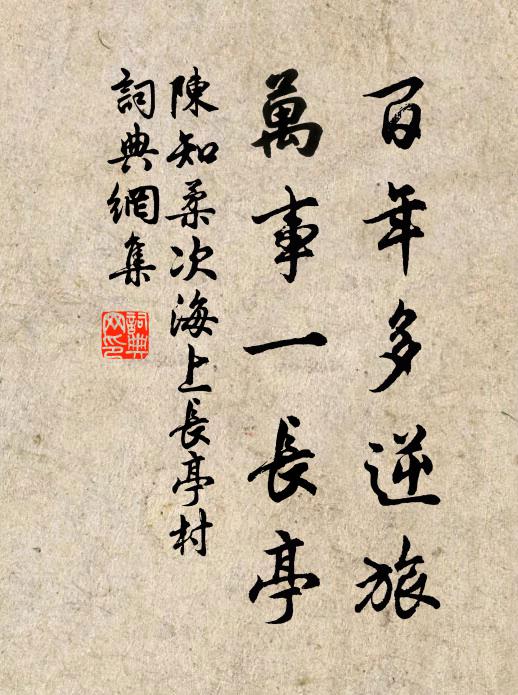 百年多逆旅
萬事一長亭
陳知柔次海上長亭村
詞典網集
詞典網印